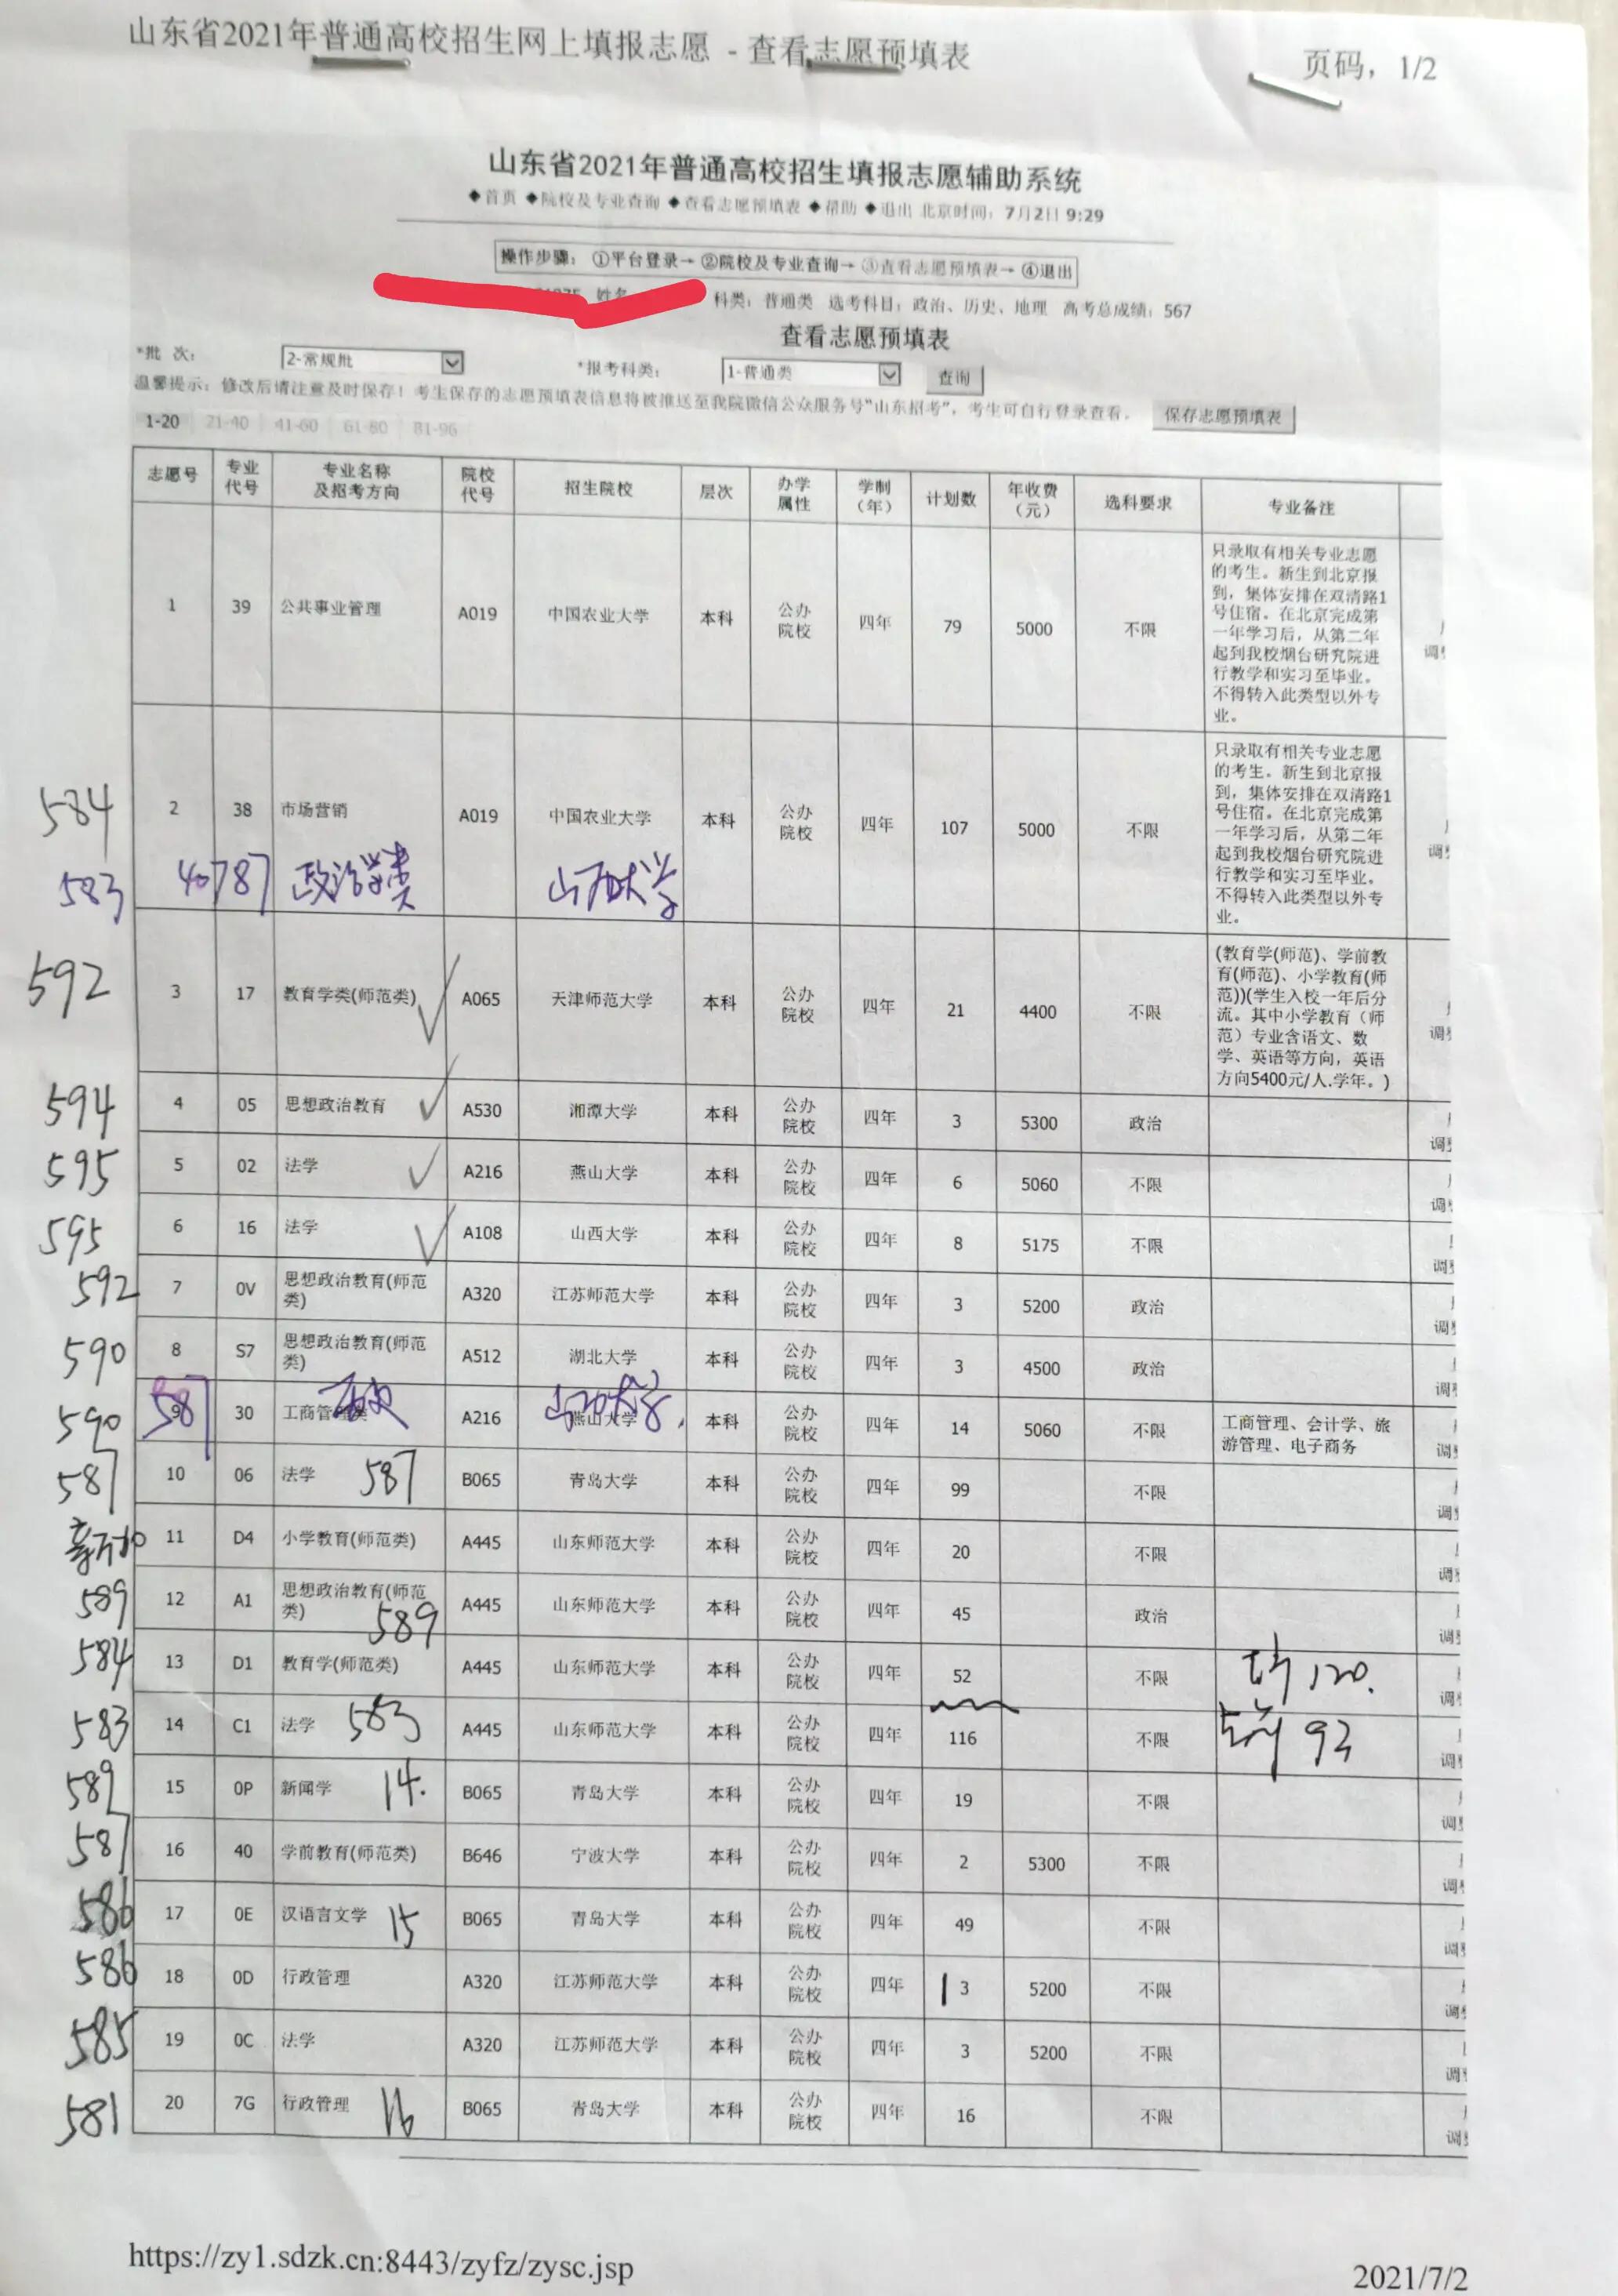 山东省2021年普通高校招生网上填报志愿 - 查看志愿预填表
页码，1/2
山东省2021年普通高校招生填报志愿辅助系统
◆首页 ◆院校及专业查询 ◆查看志愿预填表 ◆帮助 ◆退出 北京时间：7月2日 9:29
操作步骤： ①平台登录→ ②院校及专业查询→ ③查看志愿预填表→ ④退出
科类：普通类 选考科目：政治、历史、地理 高考总成绩：567
查看志愿预填表
*批 次： 2-常规批 *报考科类： 1-普通类 查询
温馨提示：修改后请注意及时保存！考生保存的志愿预填表信息将被推送至我院微信公众服务号“山东招考”，考生可自行登录查看。 保存志愿预填表
1-20 21-40 41-60 61-80 81-96
志愿号 专业代号 专业名称及招考方向 院校代号 招生院校 层次 办学属性 学制（年） 计划数 年收费（元） 选科要求 专业备注
1 39 公共事业管理 A019 中国农业大学 本科 公办院校 四年 79 5000 不限
只录取有相关专业志愿
的考生。新生到北京报
到，集体安排在双清路1
号住宿。在北京完成第
一年学习后，从第二年
起到我校烟台研究院进
行教学和实习至毕业。
不得转入此类型以外专
业。
584 2 38 市场营销 A019 中国农业大学 本科 公办院校 四年 107 5000 不限
只录取有相关专业志愿
的考生。新生到北京报
到，集体安排在双清路1
号住宿。在北京完成第
一年学习后，从第二年
起到我校烟台研究院进
行教学和实习至毕业。
不得转入此类型以外专
业。
583 40787 政治学类 山西大学
592 3 17 教育学类(师范类) ✓ A065 天津师范大学 本科 公办院校 四年 21 4400 不限
(教育学(师范)、学前教
育(师范)、小学教育(师
范))(学生入校一年后分
流。其中小学教育（师
范）专业含语文、数
学、英语等方向，英语
方向5400元/人.学年。)
594 4 05 思想政治教育 ✓ A530 湘潭大学 本科 公办院校 四年 3 5300 政治
595 5 02 法学 ✓ A216 燕山大学 本科 公办院校 四年 6 5060 不限
595 6 16 法学 ✓ A108 山西大学 本科 公办院校 四年 8 5175 不限
592 7 0V 思想政治教育(师范类) A320 江苏师范大学 本科 公办院校 四年 3 5200 政治
590 8 S7 思想政治教育(师范类) A512 湖北大学 本科 公办院校 四年 3 4500 政治
587
590 9 30 工商管理类 A216 燕山大学 本科 公办院校 四年 14 5060 不限 工商管理、会计学、旅游管理、电子商务
587 10 06 法学 587 B065 青岛大学 本科 公办院校 四年 99 不限
11 D4 小学教育(师范类) A445 山东师范大学 本科 公办院校 四年 20 不限
589 12 A1 思想政治教育(师范类) 589 A445 山东师范大学 本科 公办院校 四年 45 政治
584 13 D1 教育学(师范类) A445 山东师范大学 本科 公办院校 四年 52 不限 120.
583 14 C1 法学 583 A445 山东师范大学 本科 公办院校 四年 116 不限 93
589 15 0P 新闻学 14. B065 青岛大学 本科 公办院校 四年 19 不限
587 16 40 学前教育(师范类) B646 宁波大学 本科 公办院校 四年 2 5300 不限
586 17 0E 汉语言文学 15 B065 青岛大学 本科 公办院校 四年 49 不限
586 18 0D 行政管理 A320 江苏师范大学 本科 公办院校 四年 3 5200 不限
585 19 0C 法学 A320 江苏师范大学 本科 公办院校 四年 3 5200 不限
581 20 7G 行政管理 16 B065 青岛大学 本科 公办院校 四年 16 不限
https://zy1.sdzk.cn:8443/zyfz/zysc.jsp
2021/7/2